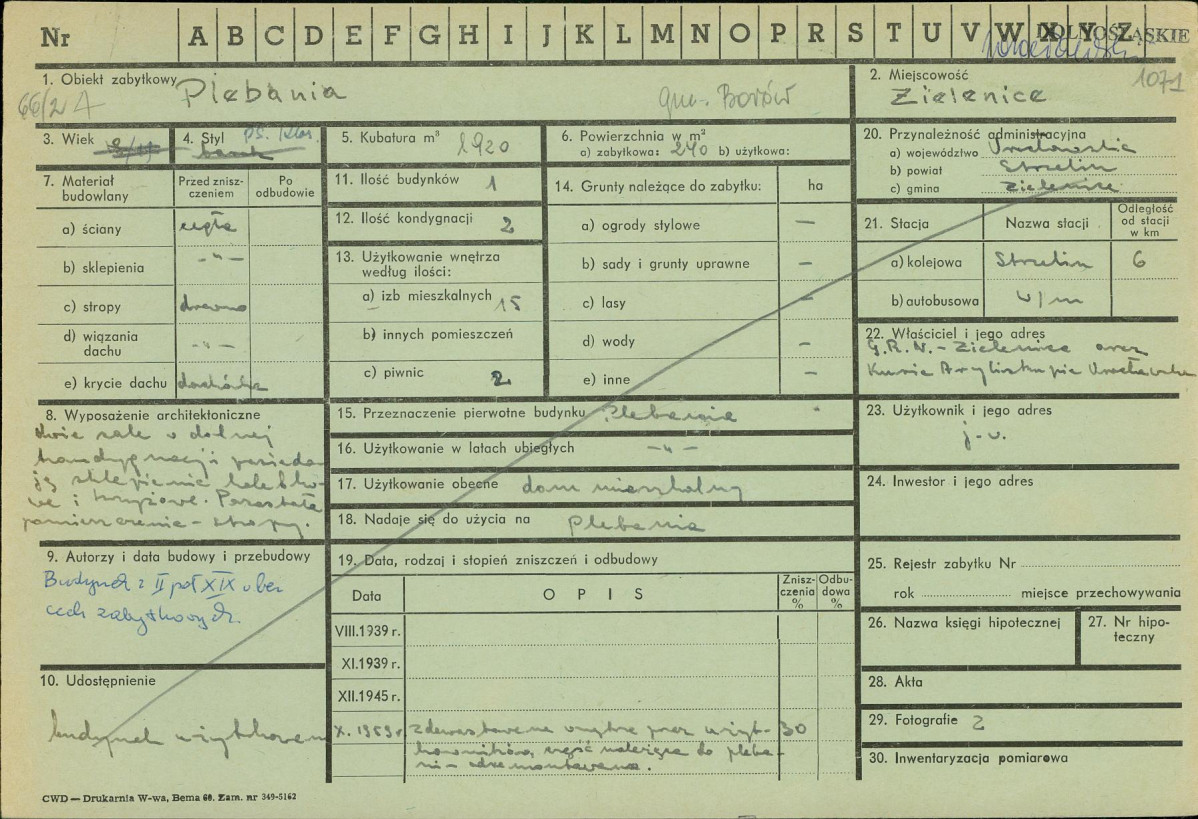 Nr A B C D E F G H I J K L M N O P R S T U V W X Y Z DOLNOŚLĄSKIE
1. Obiekt zabytkowy Plebania
66/2 A
gm. Borów
2. Miejscowość 1071
Zielenice
3. Wiek
4. Styl ps. klas.
barok
5. Kubatura m³ 1920
6. Powierzchnia w m²
a) zabytkowa: 240 b) użytkowa:
7. Materiał budowlany
Przed znisz-
czeniem
Po
odbudowie
a) ściany cegła
b) sklepienia -"-
c) stropy drewno
d) wiązania
dachu -"-
e) krycie dachu dachówka
8. Wyposażenie architektoniczne
dwie sale w dolnej
kondygnacji posiada-
ją sklepienie kolebko-
we i krzyżowe. Pozostałe
pomieszczenia - stropy.
9. Autorzy i data budowy i przebudowy
Budynek z II poł XIX w bez
cech zabytkowych.
10. Udostępnienie
budynek użytkowany
11. Ilość budynków 1
12. Ilość kondygnacji 2
13. Użytkowanie wnętrza
według ilości:
a) izb mieszkalnych 15
b) innych pomieszczeń
c) piwnic 2
14. Grunty należące do zabytku: ha
a) ogrody stylowe —
b) sady i grunty uprawne —
c) lasy —
d) wody —
e) inne —
15. Przeznaczenie pierwotne budynku Plebania
16. Użytkowanie w latach ubiegłych -"-
17. Użytkowanie obecne dom mieszkalny
18. Nadaje się do użycia na plebania
19. Data, rodzaj i stopień zniszczeń i odbudowy
Data OPIS Znisz-
czenia
% Odbu-
dowa
%
VIII.1939 r.
XI.1939 r.
XII.1945 r.
X. 1959 r. zdewastowane wnętrze przez użyt- 30
kowników, część należąca do pleba-
nii - odremontowana.
20. Przynależność administracyjna
a) województwo Wrocławskie
b) powiat Strzelin
c) gmina Zielenice
21. Stacja Nazwa stacji Odległość
od stacji
w km
a) kolejowa Strzelin 6
b) autobusowa w/m
22. Właściciel i jego adres
G.R.N. - Zielenice oraz
Kuria Arcybiskupia Wrocławska
23. Użytkownik i jego adres
j.w.
24. Inwestor i jego adres
25. Rejestr zabytku Nr
rok miejsce przechowywania
26. Nazwa księgi hipotecznej
27. Nr hipo-
teczny
28. Akta
29. Fotografie 2
30. Inwentaryzacja pomiarowa
CWD — Drukarnia W-wa, Bema 60. Zam. nr 349-5162